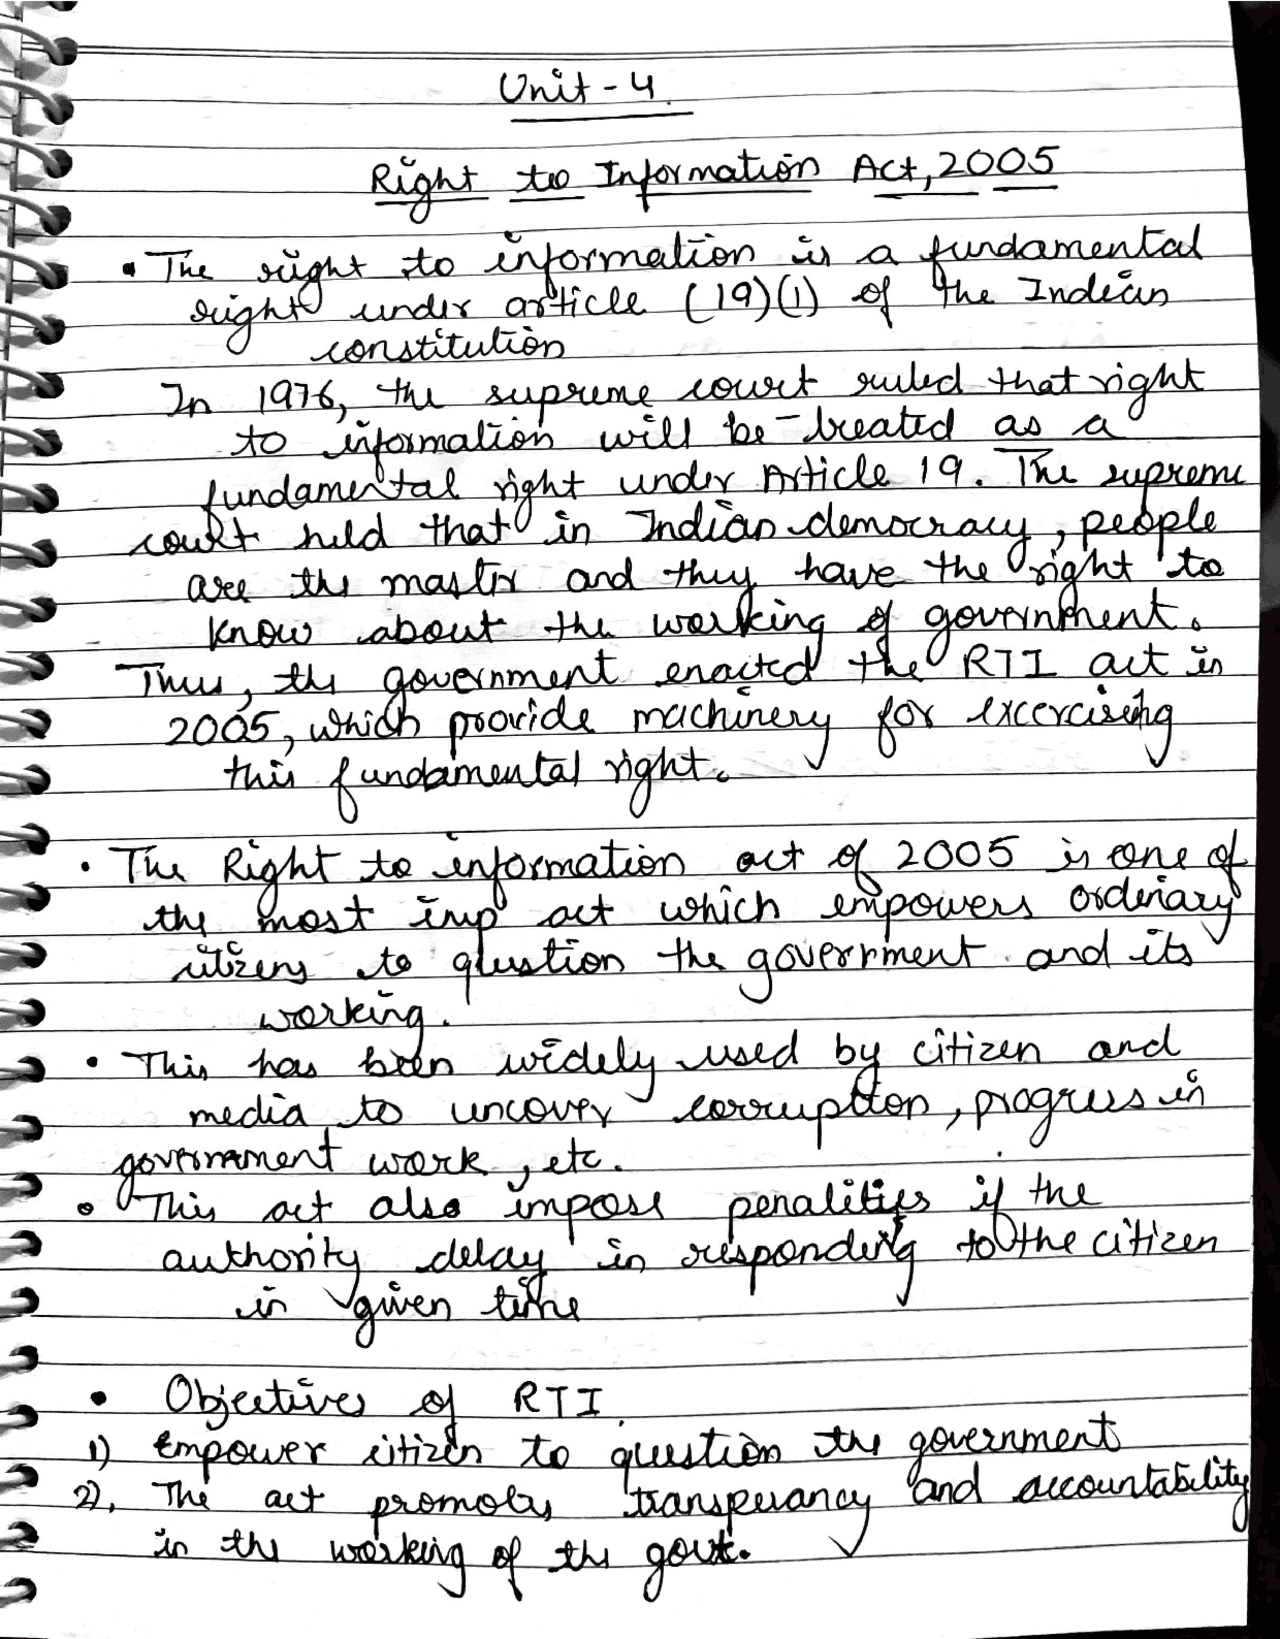 Unit - 4
Right to Information Act, 2005
• The right to information is a fundamental
right under article (19)(1) of the Indian
constitution
In 1976, the supreme court ruled that right
to information will be treated as a
fundamental right under Article 19. The supreme
court held that in Indian democracy, people
are the master and they have the right to
know about the working of government.
Thus, the government enacted the RTI act in
2005, which provide machinery for excercising
this fundamental right.
• The Right to information act of 2005 is one of
the most imp act which empowers ordinary
citizens to question the government and its
working.
• This has been widely used by citizen and
media to uncover corruption, progress in
government work, etc.
• This act also impose penalities if the
authority delay in responding to the citizen
in given time
• Objectives of RTI
1) Empower citizen to question the government
2). The act promotes transperancy and accountability
in the working of the govt.